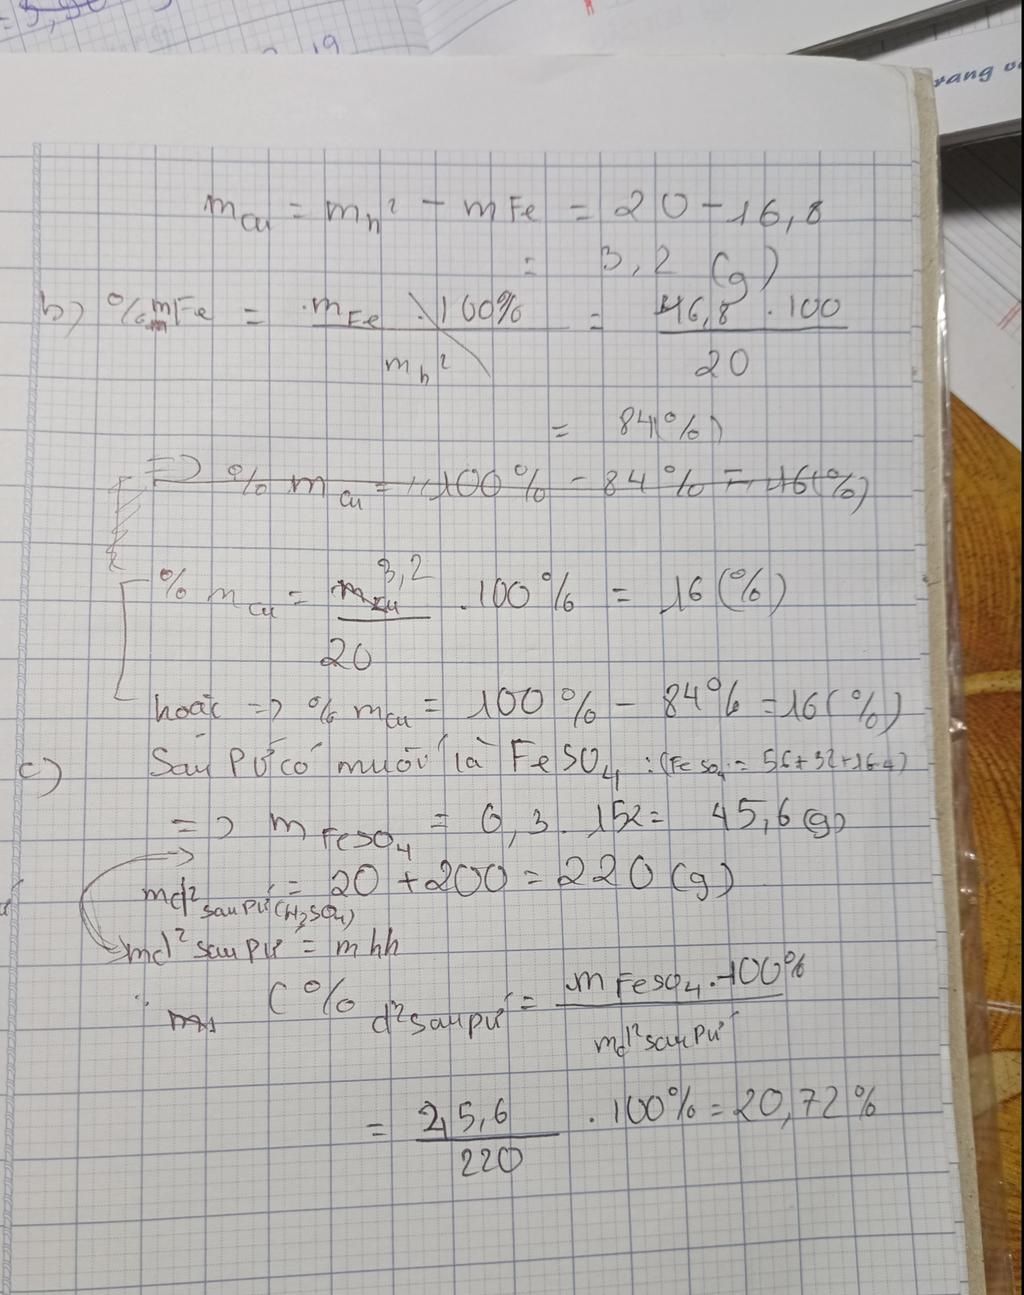 = 3,90
19
rang
m Cu = m h² - m Fe = 20 - 16,8
= 3,2 (g)
b) % mFe = m Fe . 100% / m h² = 16,8 . 100 / 20
= 84(%)
=> % m Cu = 100% - 84% = 16(%)
% m Cu = 3,2 / 20 . 100% = 16(%)
hoặc => % m Cu = 100% - 84% = 16(%)
c) Sau PƯ có muối là FeSO4 : (FeSO4 = 56+32+16.4)
=> m FeSO4 = 0,3 . 152 = 45,6 (g)
md² sau PƯ (H2SO4) = 20 + 200 = 220 (g)
md² sau PƯ = m hh
C% d² sau PƯ = m FeSO4 . 100% / md² sau PƯ
= 45,6 / 220 . 100% = 20,72%